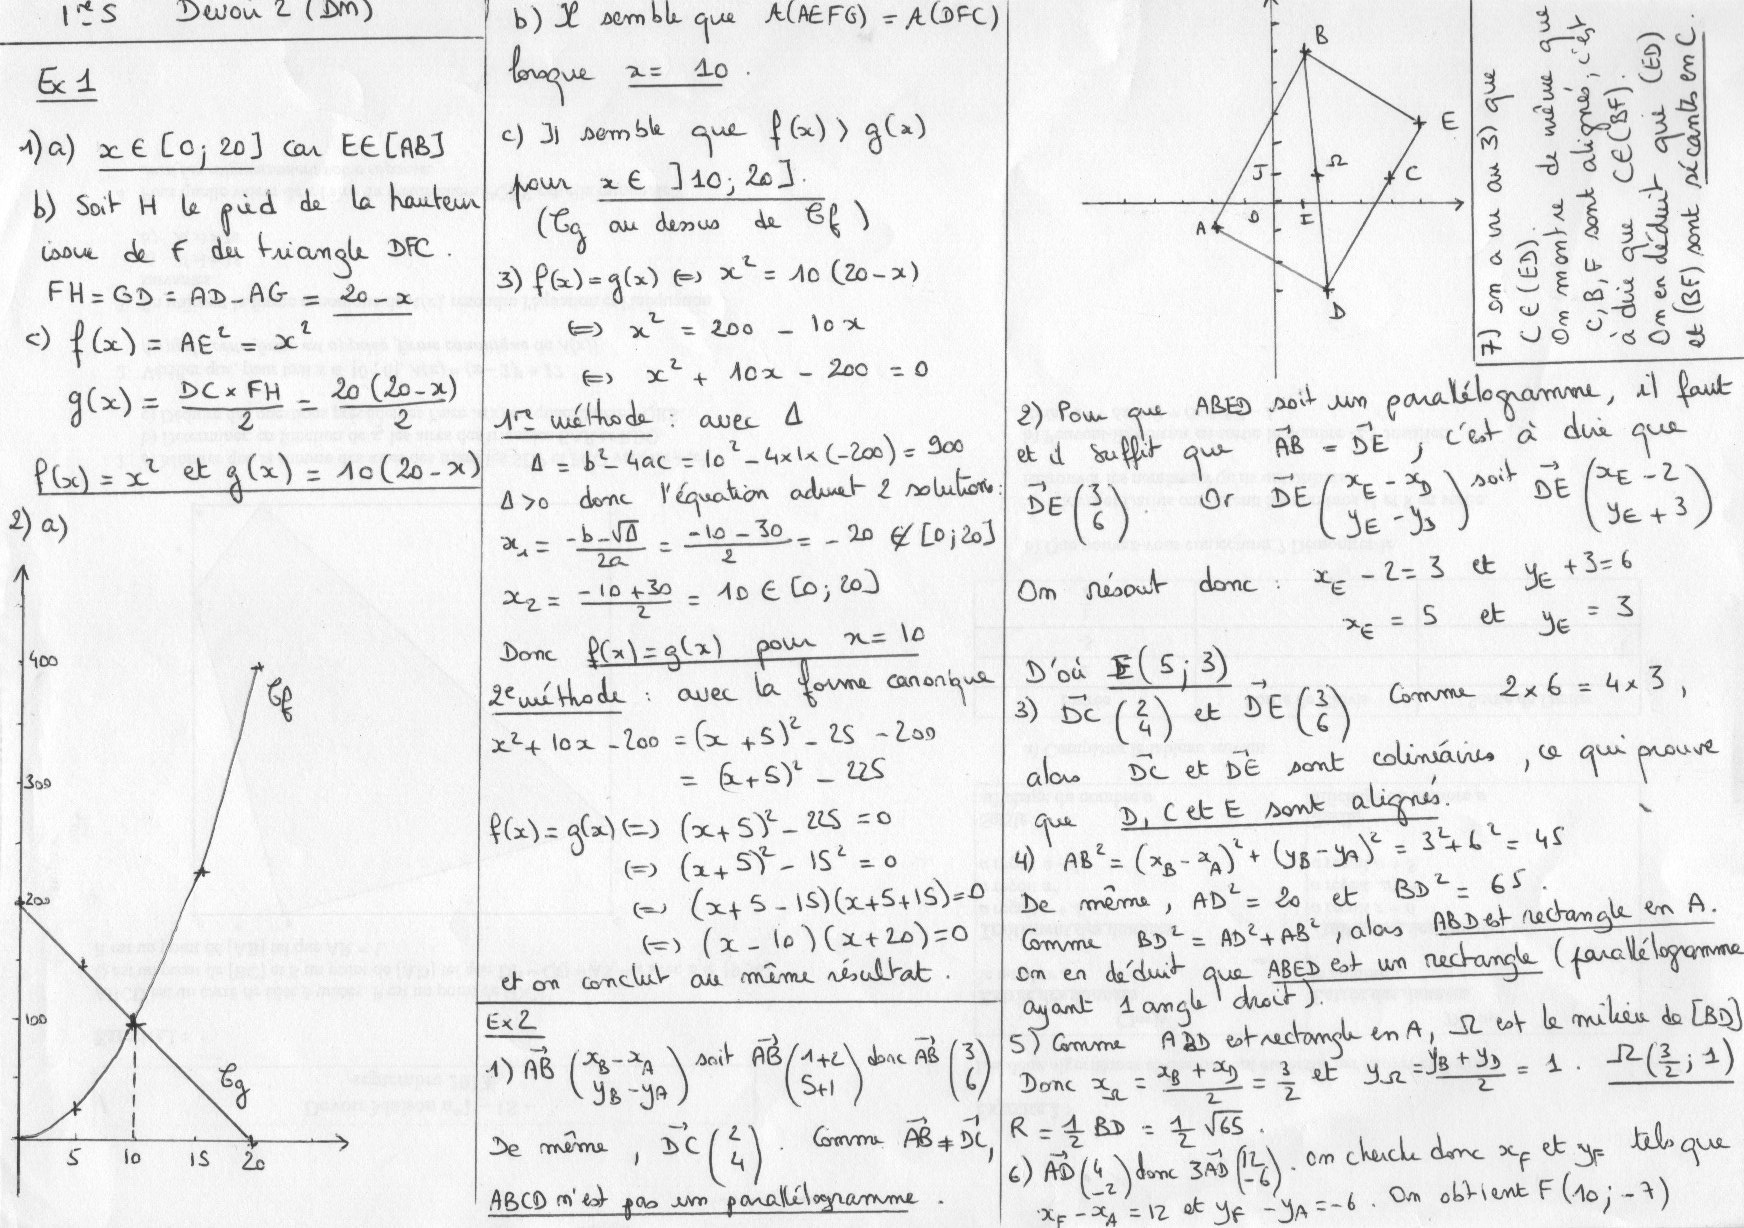 1re S Devoir 2 (DM)
Ex 1
1) a) x ∈ [0; 20] car E∈[AB]
b) Soit H le pied de la hauteur
issue de F du triangle DFC.
FH = GD = AD - AG = 20 - x
c) f(x) = AE² = x²
g(x) = DC × FH / 2 = 20(20-x) / 2
f(x) = x² et g(x) = 10(20-x)
2) a)
400
300
200
100
5 10 15 20
Cf
Cg
b) Il semble que A(AEFG) = A(DFC)
lorsque x = 10.
c) Il semble que f(x) > g(x)
pour x ∈ ]10; 20].
(Cg au dessus de Cf)
3) f(x) = g(x) ⇔ x² = 10(20-x)
⇔ x² = 200 - 10x
⇔ x² + 10x - 200 = 0
1re méthode : avec Δ
Δ = b² - 4ac = 10² - 4×1×(-200) = 900
Δ>0 donc l'équation admet 2 solutions :
x₁ = -b-√Δ / 2a = -10-30 / 2 = -20 ∉ [0; 20]
x₂ = -10+30 / 2 = 10 ∈ [0; 20]
Donc f(x) = g(x) pour x = 10
2e méthode : avec la forme canonique
x² + 10x - 200 = (x+5)² - 25 - 200
= (x+5)² - 225
f(x) = g(x) ⇔ (x+5)² - 225 = 0
⇔ (x+5)² - 15² = 0
⇔ (x+5-15)(x+5+15) = 0
⇔ (x-10)(x+20) = 0
et on conclut au même résultat.
Ex 2
1) AB⃗ (xB - xA ; yB - yA) soit AB⃗ (1+2 ; 5+1) donc AB⃗ (3 ; 6)
De même, DC⃗ (2 ; 4). Comme AB⃗ ≠ DC⃗,
ABCD n'est pas un parallélogramme.
B
E
Ω
C
J
A
O
I
D
7) On a vu au 3) que
C ∈ (ED).
On montre de même que
C, B, F sont alignés, c'est
à dire que C∈(BF).
On en déduit que (ED)
et (BF) sont sécantes en C.
2) Pour que ABED soit un parallélogramme, il faut
et il suffit que AB⃗ = DE⃗, c'est à dire que
DE⃗ (3 ; 6). Or DE⃗ (xE - xD ; yE - yD) soit DE⃗ (xE - 2 ; yE + 3)
On résout donc : xE - 2 = 3 et yE + 3 = 6
xE = 5 et yE = 3
D'où E(5; 3)
3) DC⃗ (2 ; 4) et DE⃗ (3 ; 6) Comme 2×6 = 4×3,
alors DC⃗ et DE⃗ sont colinéaires, ce qui prouve
que D, C et E sont alignés.
4) AB² = (xB - xA)² + (yB - yA)² = 3² + 6² = 45
De même, AD² = 20 et BD² = 65.
Comme BD² = AD² + AB², alors ABD est rectangle en A.
On en déduit que ABED est un rectangle (parallélogramme
ayant 1 angle droit).
5) Comme ABD est rectangle en A, Ω est le milieu de [BD]
Donc xΩ = xB + xD / 2 = 3/2 et yΩ = yB + yD / 2 = 1. Ω(3/2; 1)
R = 1/2 BD = 1/2 √65.
6) AD⃗ (4 ; -2) donc 3AD⃗ (12 ; -6). On cherche donc xF et yF tels que
xF - xA = 12 et yF - yA = -6. On obtient F(10; -7)